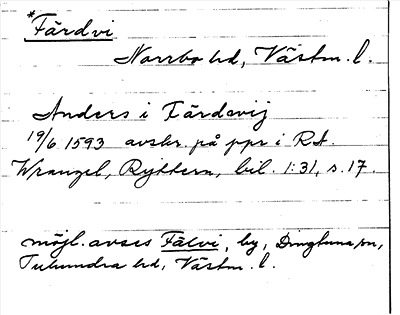 *Färdvi
Norrbo hd, Västm. l.
Anders i Färdevij
19/6 1593 avskr. på ppr i RA.
Wrangel, Ryttern, bil. 1:31, s. 17.
möjl. avses Fälvi, by, Dingtuna sn,
Tuhundra hd, Västm. l.